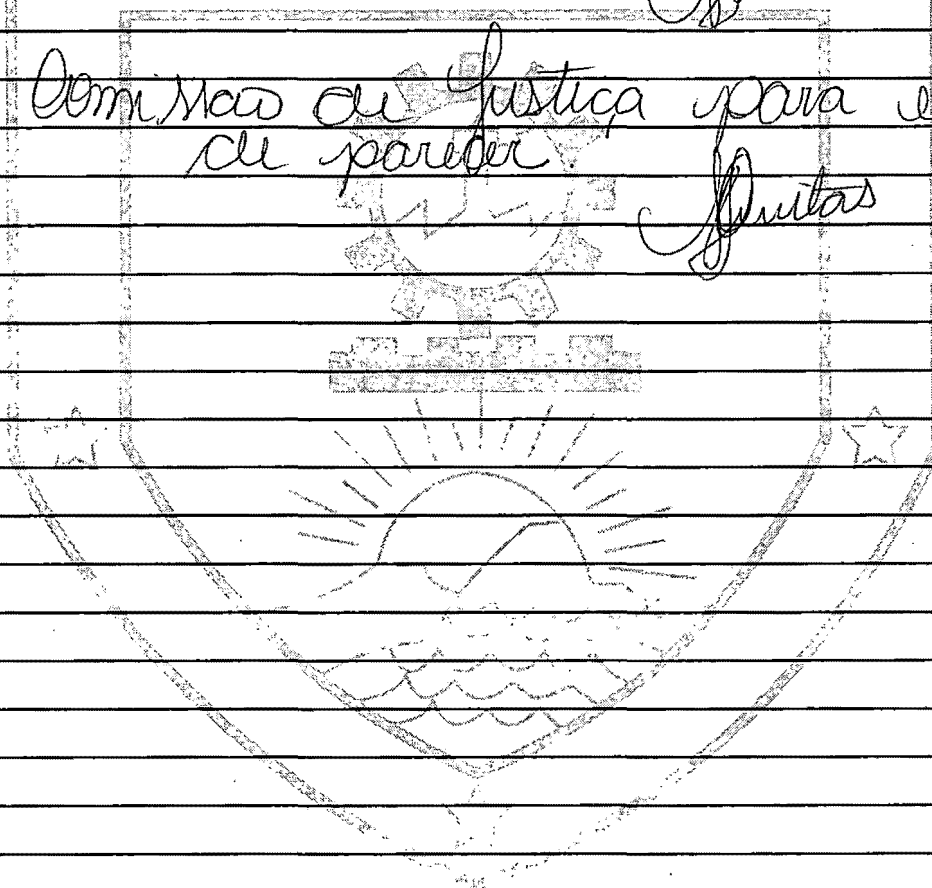 Comissao de Justiça para e
de parecer